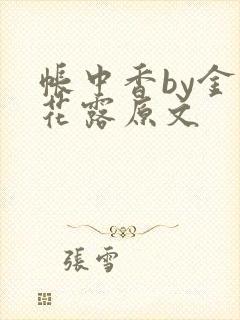 帳中香by金
花露原文
張雪